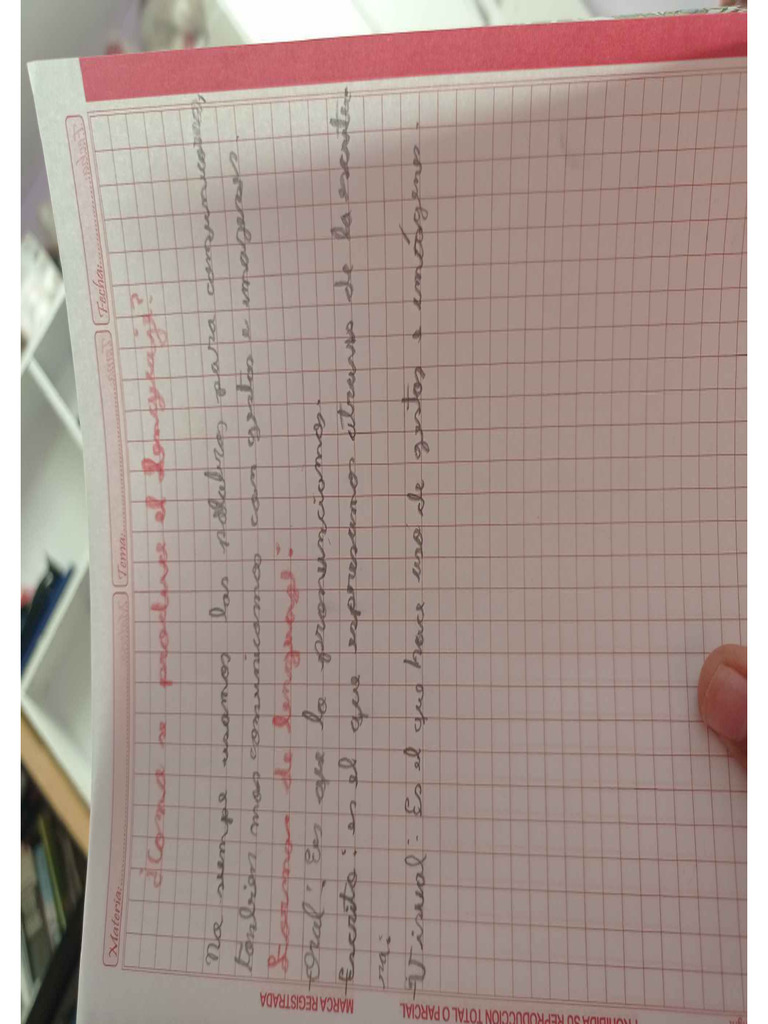 Materia: Tema: Fecha:
¿Como se produce el lenguaje?
No siempre usamos las palabras para comunicarnos,
tanbien nos comunicamos con gestos e imagenes.
Formas de lenguaje:
Oral: Es que la pronunciamos.
Escrito: es el que expresamos atraves de la escritu-
ra:
Visual: Es el que hace uso de gestos e imágenes.
MARCA REGISTRADA
PROHIBIDA SU REPRODUCCION TOTAL O PARCIAL